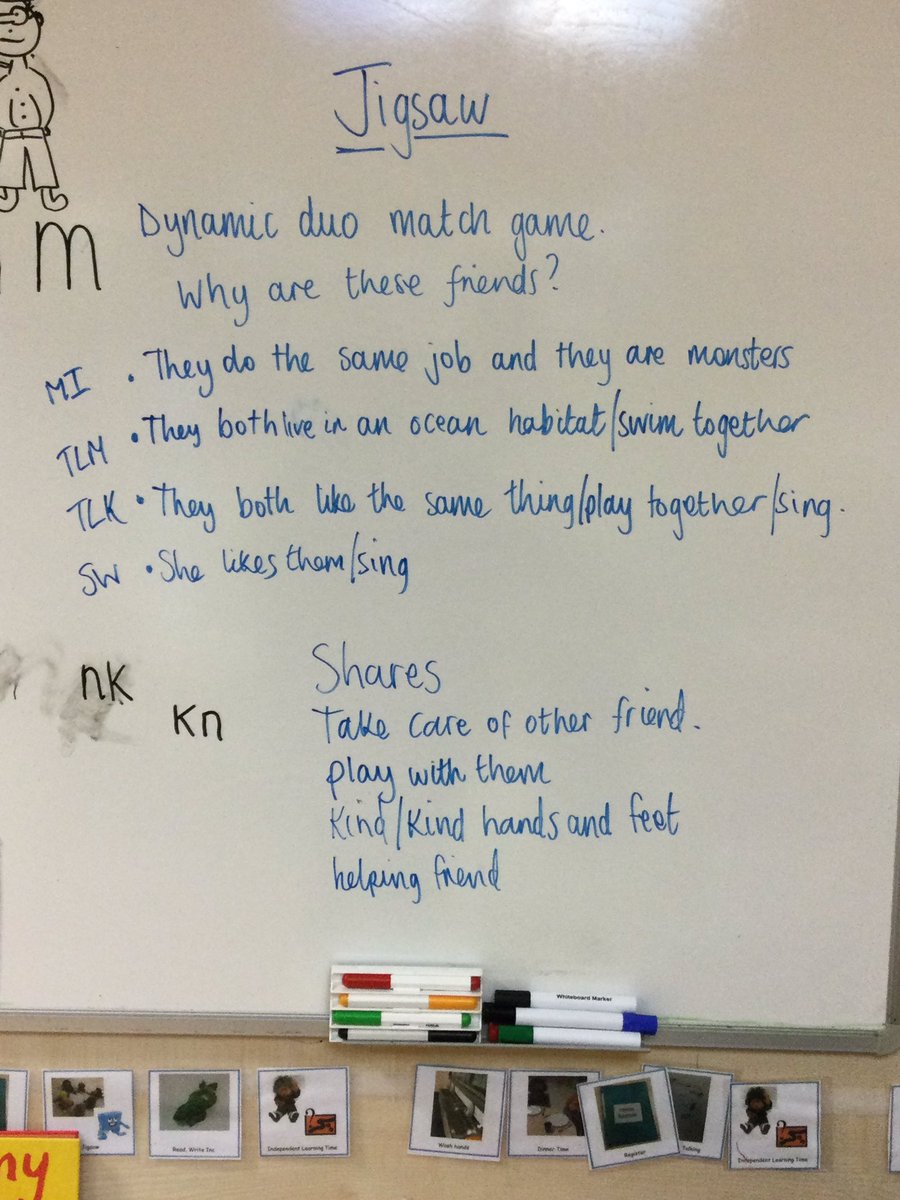 Jigsaw
m
Dynamic duo match game.
Why are these friends?
MI • They do the same job and they are monsters
TLM • They both live in an ocean habitat/swim together
TLK • They both like the same thing/play together/sing.
SW • She likes them/sing
nk
kn
Shares
Take care of other friend.
play with them
Kind/Kind hands and feet
helping friend
Whiteboard Marker
Jigsaw
Read, Write Inc
Independent Learning Time
Wash hands
Dinner Time
Register
Talking
Independent Learning Time
ny